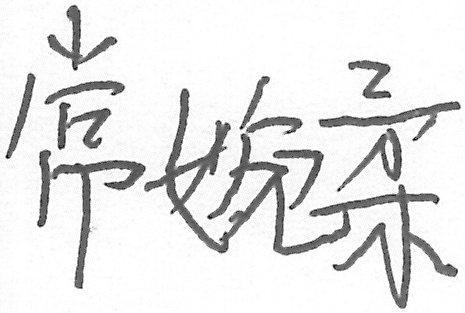 常婉柔